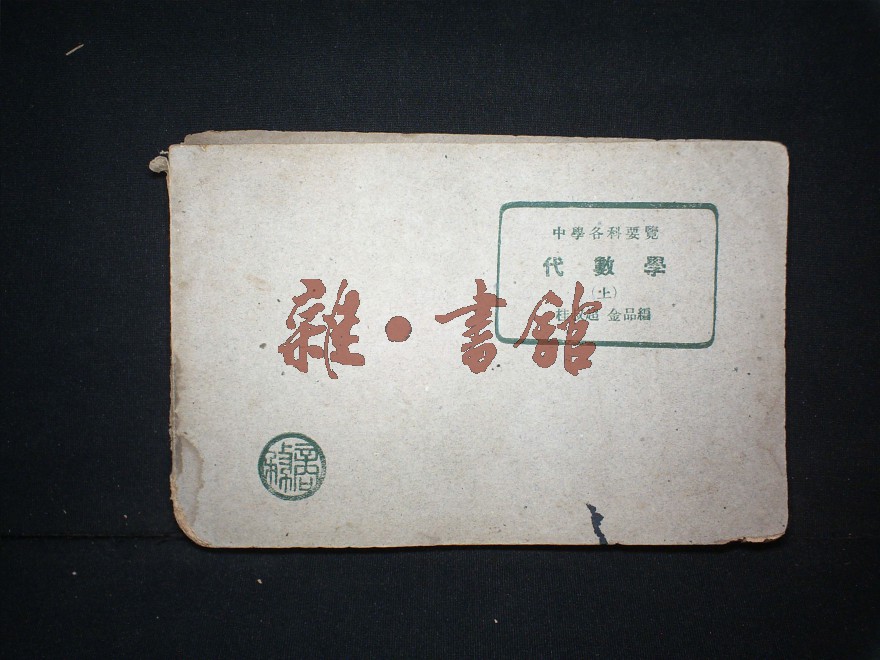 中學各科要覽
代數學
(上)
桂叔超 金品編
雜·書館